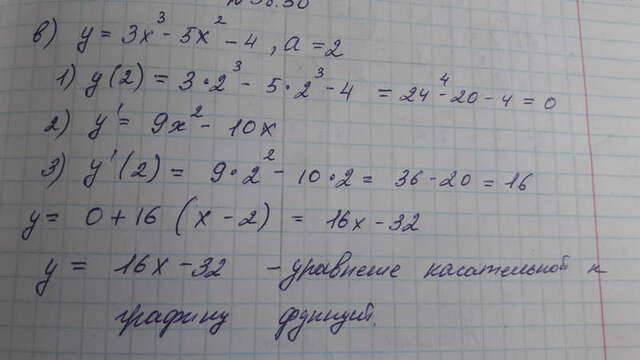 в) y = 3x³ - 5x² - 4, a = 2
1) y(2) = 3·2³ - 5·2³ - 4 = 24 - 20 - 4 = 0
2) y' = 9x² - 10x
3) y'(2) = 9·2² - 10·2 = 36 - 20 = 16
y = 0 + 16 (x - 2) = 16x - 32
y = 16x - 32 - уравнение касательной к
графику функций.